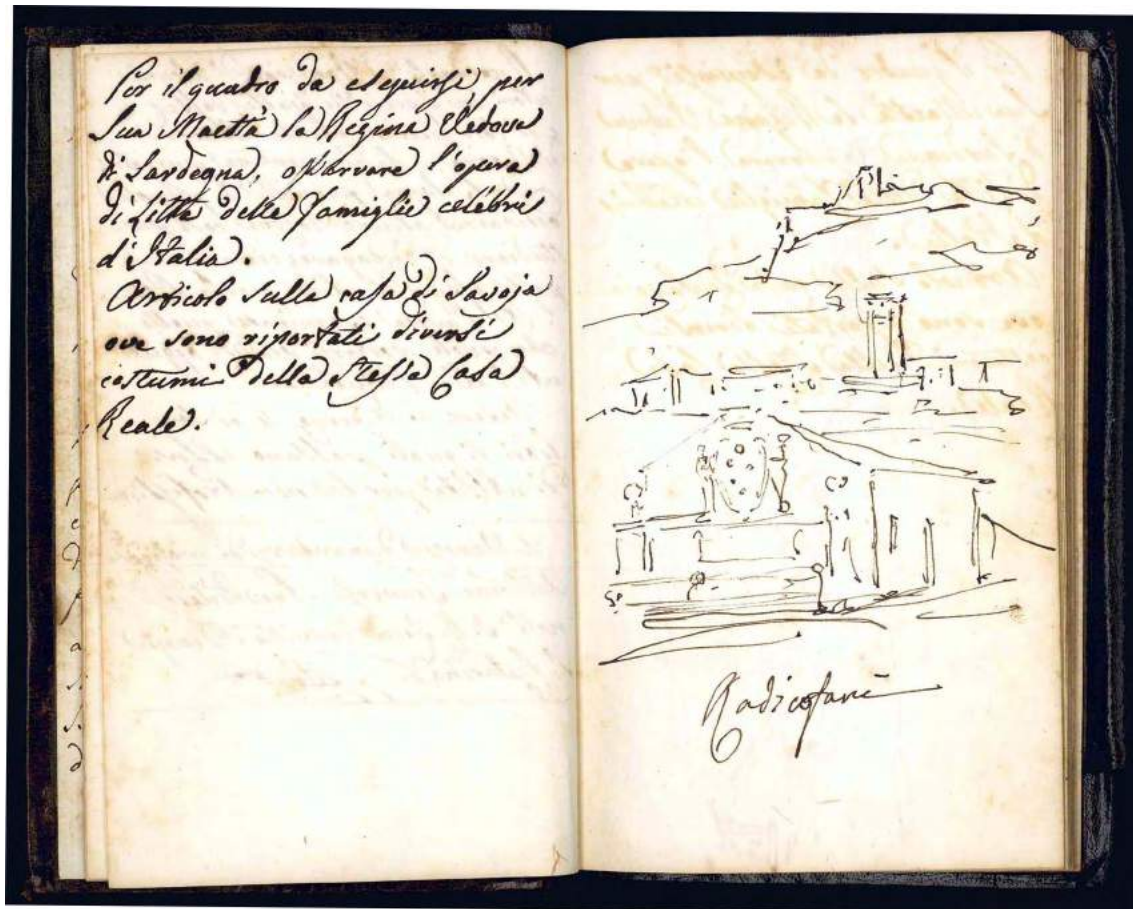 Per il quadro da eseguirsi per
Sua Maestà la Regina Vedova
di Sardegna, osservare l'opera
di Litta delle famiglie celebri
d'Italia.
Articolo sulla casa di Savoja
ove sono riportati diversi
costumi della stessa Casa
Reale.
Radicofani